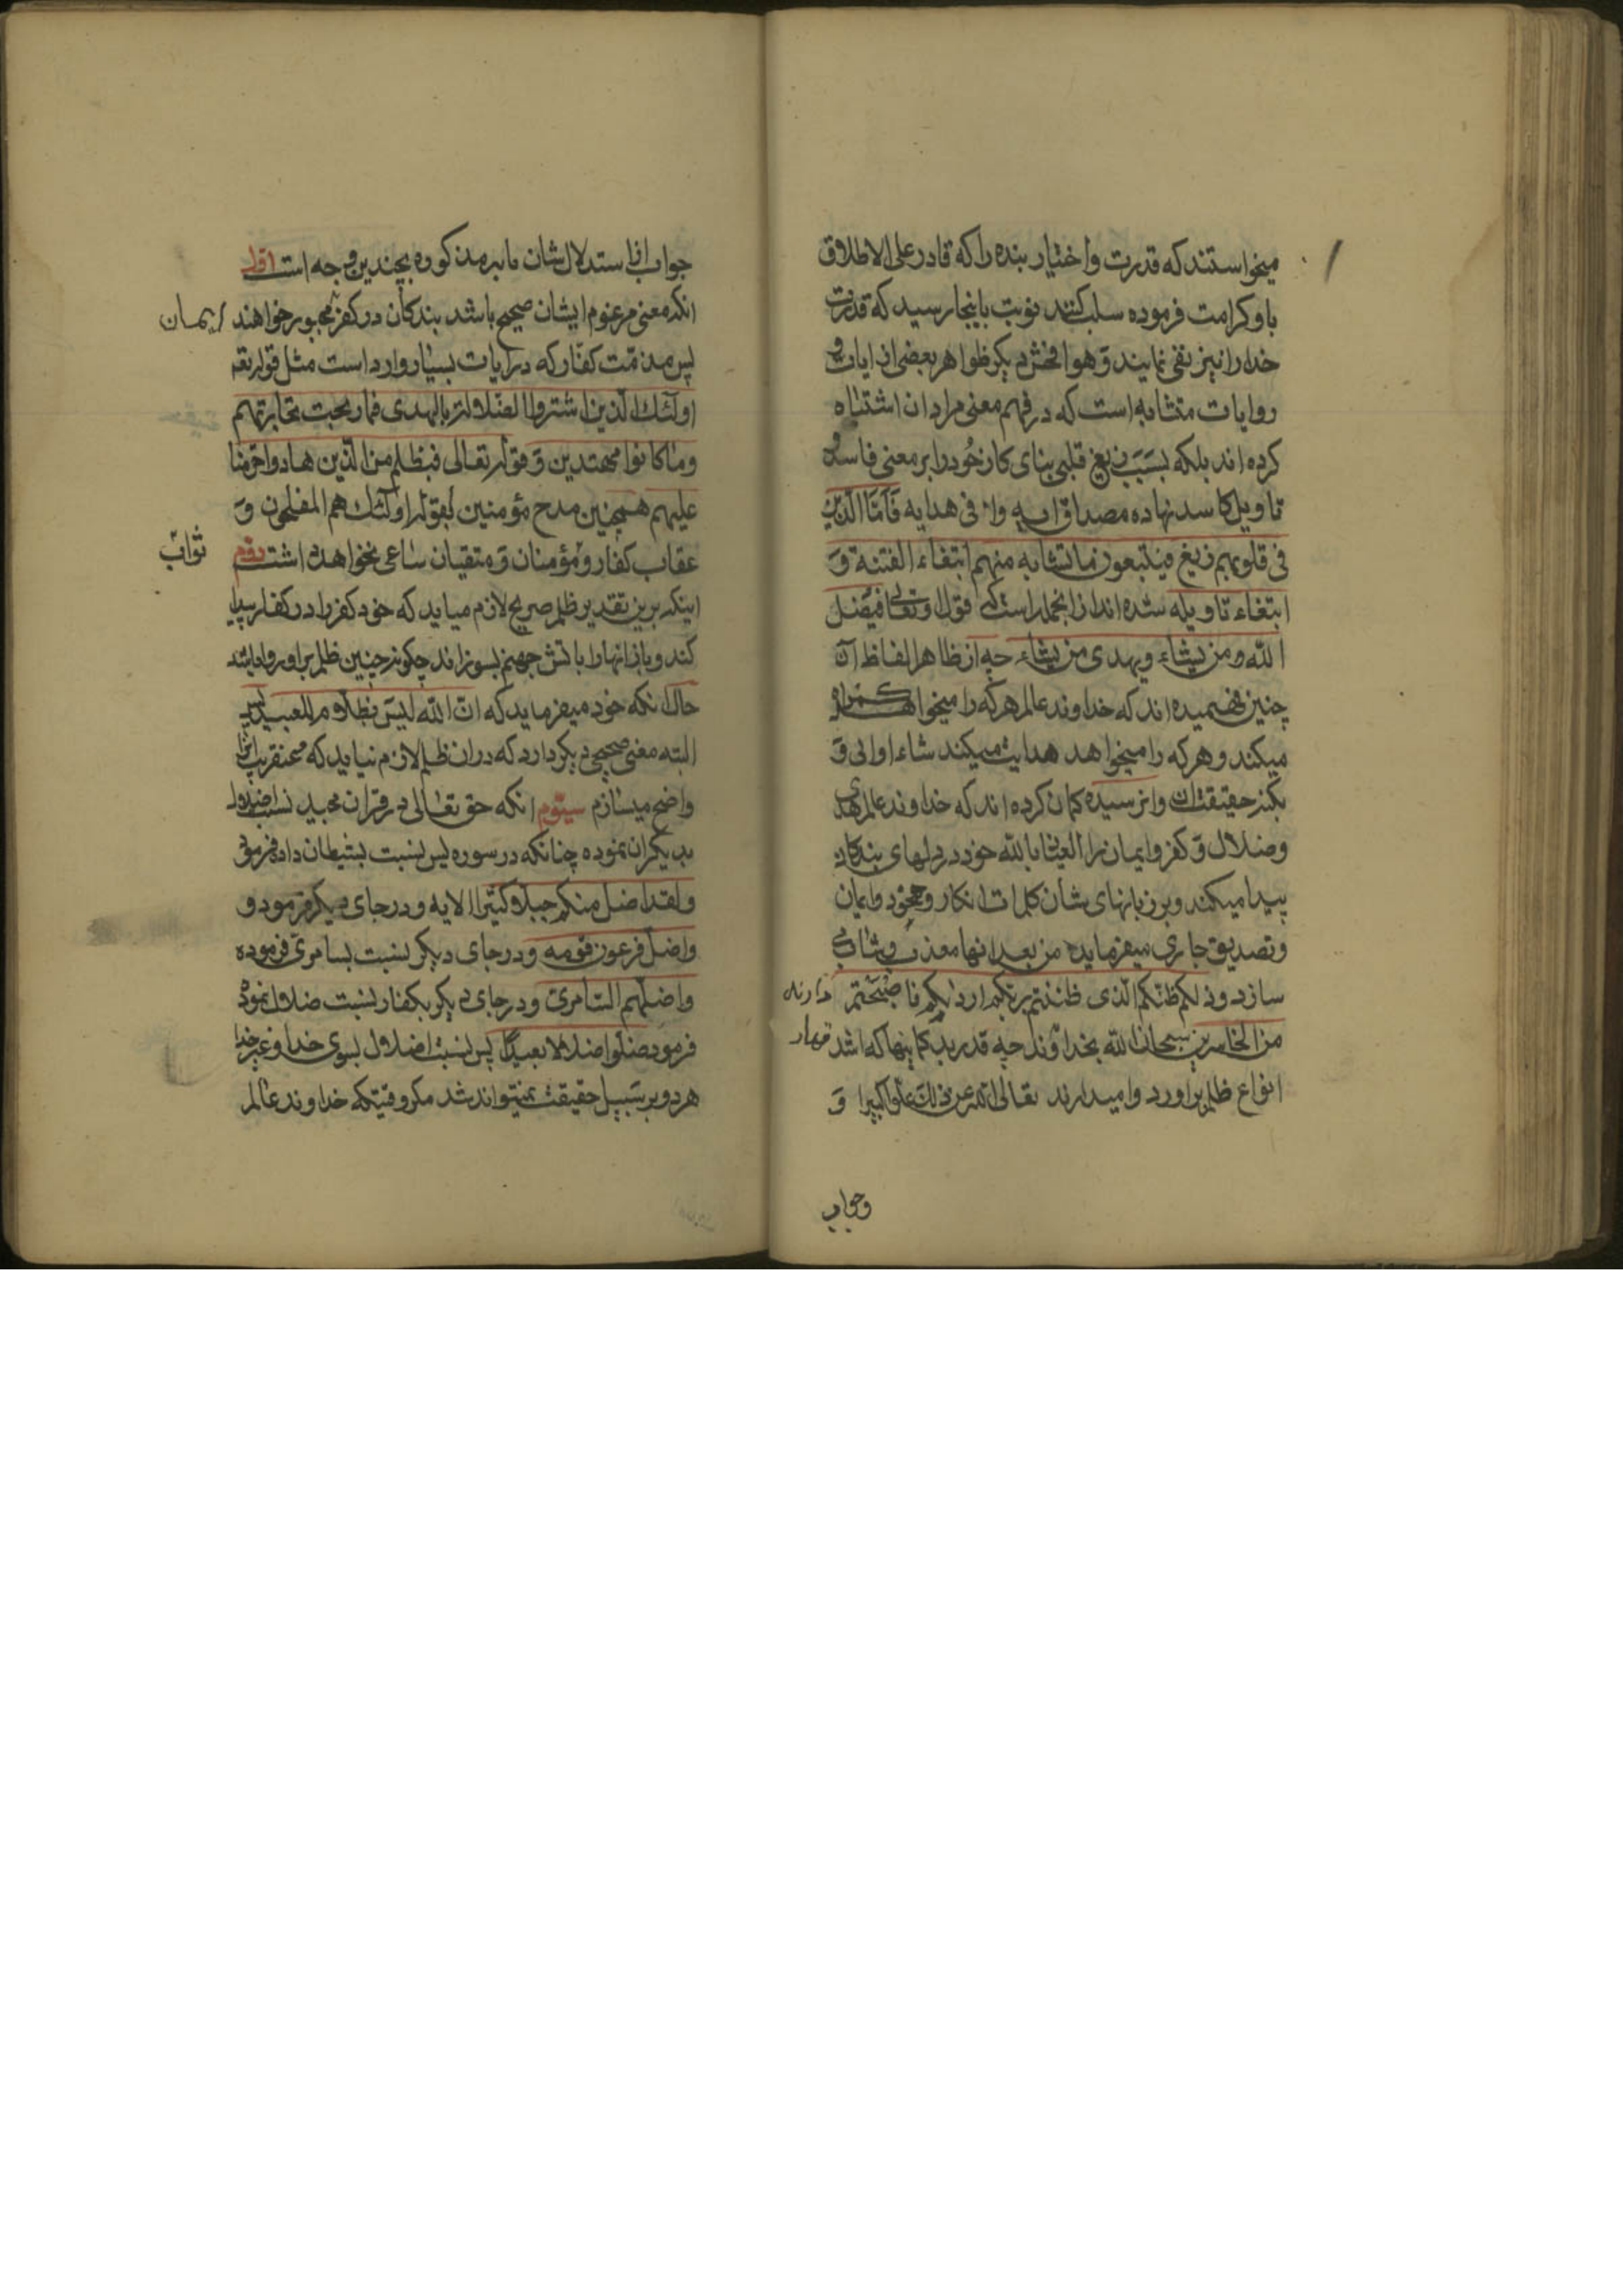 میخواستند که قدرت واختیار بنده را که قادر علی الاطلاق
باو کرامت فرموده سلب کنند نوبت باینجا رسید که قدرت
خدا را نیز نفی نمایند وهو افحش دیکر ظواهر بعضی از ایات و
روایات متشابه است که در فهم معنی مراد ان اشتباه
کرده اند بلکه بسبب زیغ قلبی بنای کار خود را بر معنی فاسد و
تاویل کاسد نهاده مصداق وافی هدایه فاما الذین
فی قلوبهم زیغ فیتبعون ما تشابه منهم ابتغاء الفتنة و
ابتغاء تاویله شده اند از انجمله است قول او تعالی فیضل
الله من یشاء ویهدی من یشاء چه از ظاهر الفاظ آن
چنین فهمیده اند که خداوند عالم هر که را میخواهد کمراه
میکند وهر که را میخواهد هدایت میکند شاء او ابی و
بکنه حقیقت ان وانرسیده کمان کرده اند که خداوند عالم هدی
وضلال و کفر وایمان را العیاذ بالله خود در دلهای بندکان
پیدا میکند وبر زبانهای شان کلمات انکار وجحود وایمان
وتصدیق جاری میفرماید من بعد انها معذب ومثاب
سازد وذلکم ظنکم الذی ظننتم بربکم اردیکم فاصبحتم
من الخاسرین سبحان الله بخداوند چه قدر بدکمانیها که اشد
قهار
انواع ظلم براو رد وامیدارند تعالی الله عن ذلک علوا کبیرا و
وجواب
جواب از استدلال شان مابر مذکوره بچندین وجه است اول
انکه معنی مزعوم ایشان صحیح باشد بندکان در کفر مجبور خواهند
ایمان
پس مذمت کفار که در ایات بسیار وارد است مثل قوله تعه
اولئک الذین اشتروا الضلالة بالهدی فما ربحت تجارتهم
وما کانوا مهتدین و قوله تعالی فبظلم من الذین هادوا حرمنا
علیهم همچنین مدح مؤمنین بقوله اولئک هم المفلحون و
عقاب کفار ومؤمنان و متقیان ساعی نخواهد داشت دوم
ثواب
اینکه برین تقدیر ظلم صریح لازم میاید که خود کفر را در کفار پیدا
کند وباز انها را باتش جهنم بسوزاند چکونه چنین ظلم براو روا باشد
حال انکه خود میفرماید که ان الله لیس بظلام للعبید پس
البته معنی صحیح دیکر دارد که دران ظلم لازم نیاید که عنقریب انرا
واضح میسازم سیوم انکه حق تعالی در قران مجید نسبت اضلال را
بدیکران نموده چنانکه در سوره یس نسبت بشیطان داده فرموده
ولقد اضل منکم جبلا کثیرا الایه ودر جای دیکر فرموده و
واضل فرعون قومه ودر جای دیکر نسبت بسامری فرموده
واضلهم السامری ودر جای دیکر بکفار نسبت ضلال نموده
فرموده ضلوا ضلالا بعیدا پس نسبت اضلال بسوی خدا وغیر خدا
هر دو بر سبیل حقیقت نمیتواند شد مکر وقتیکه خداوند عالم